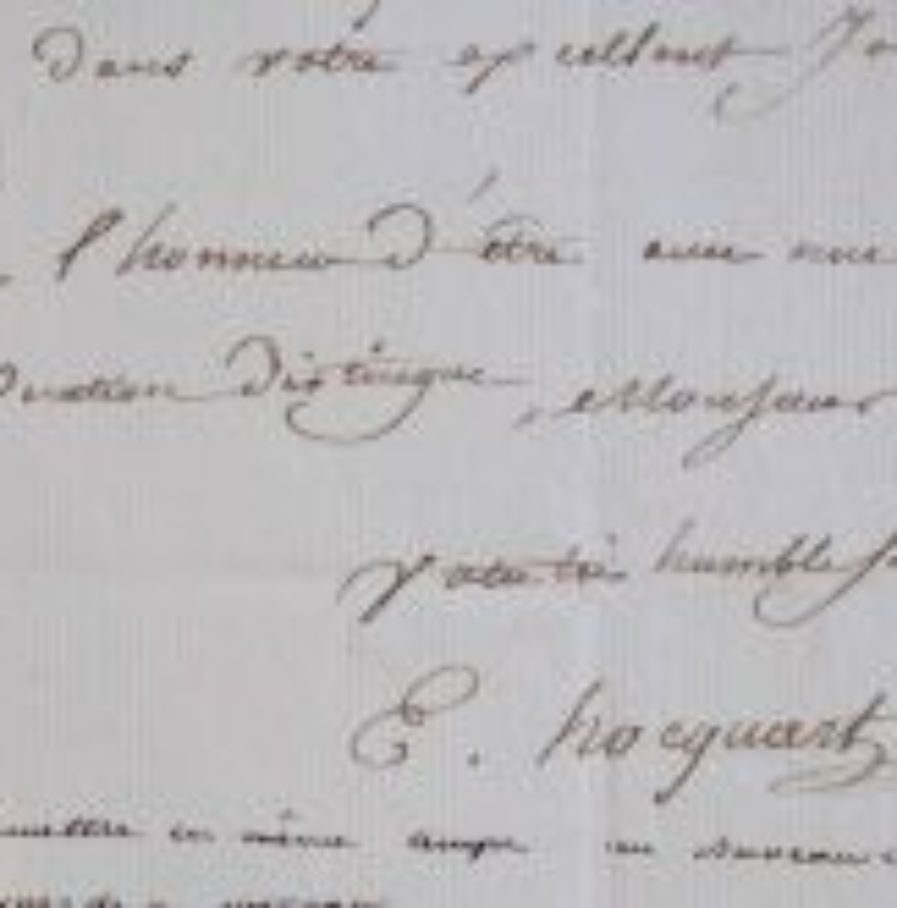 Dans votre excellent Jo
l'honneur d'être avec une
distingué, Monsieur
votre très humble
E. hocquart
mettre en même temps un nouveau